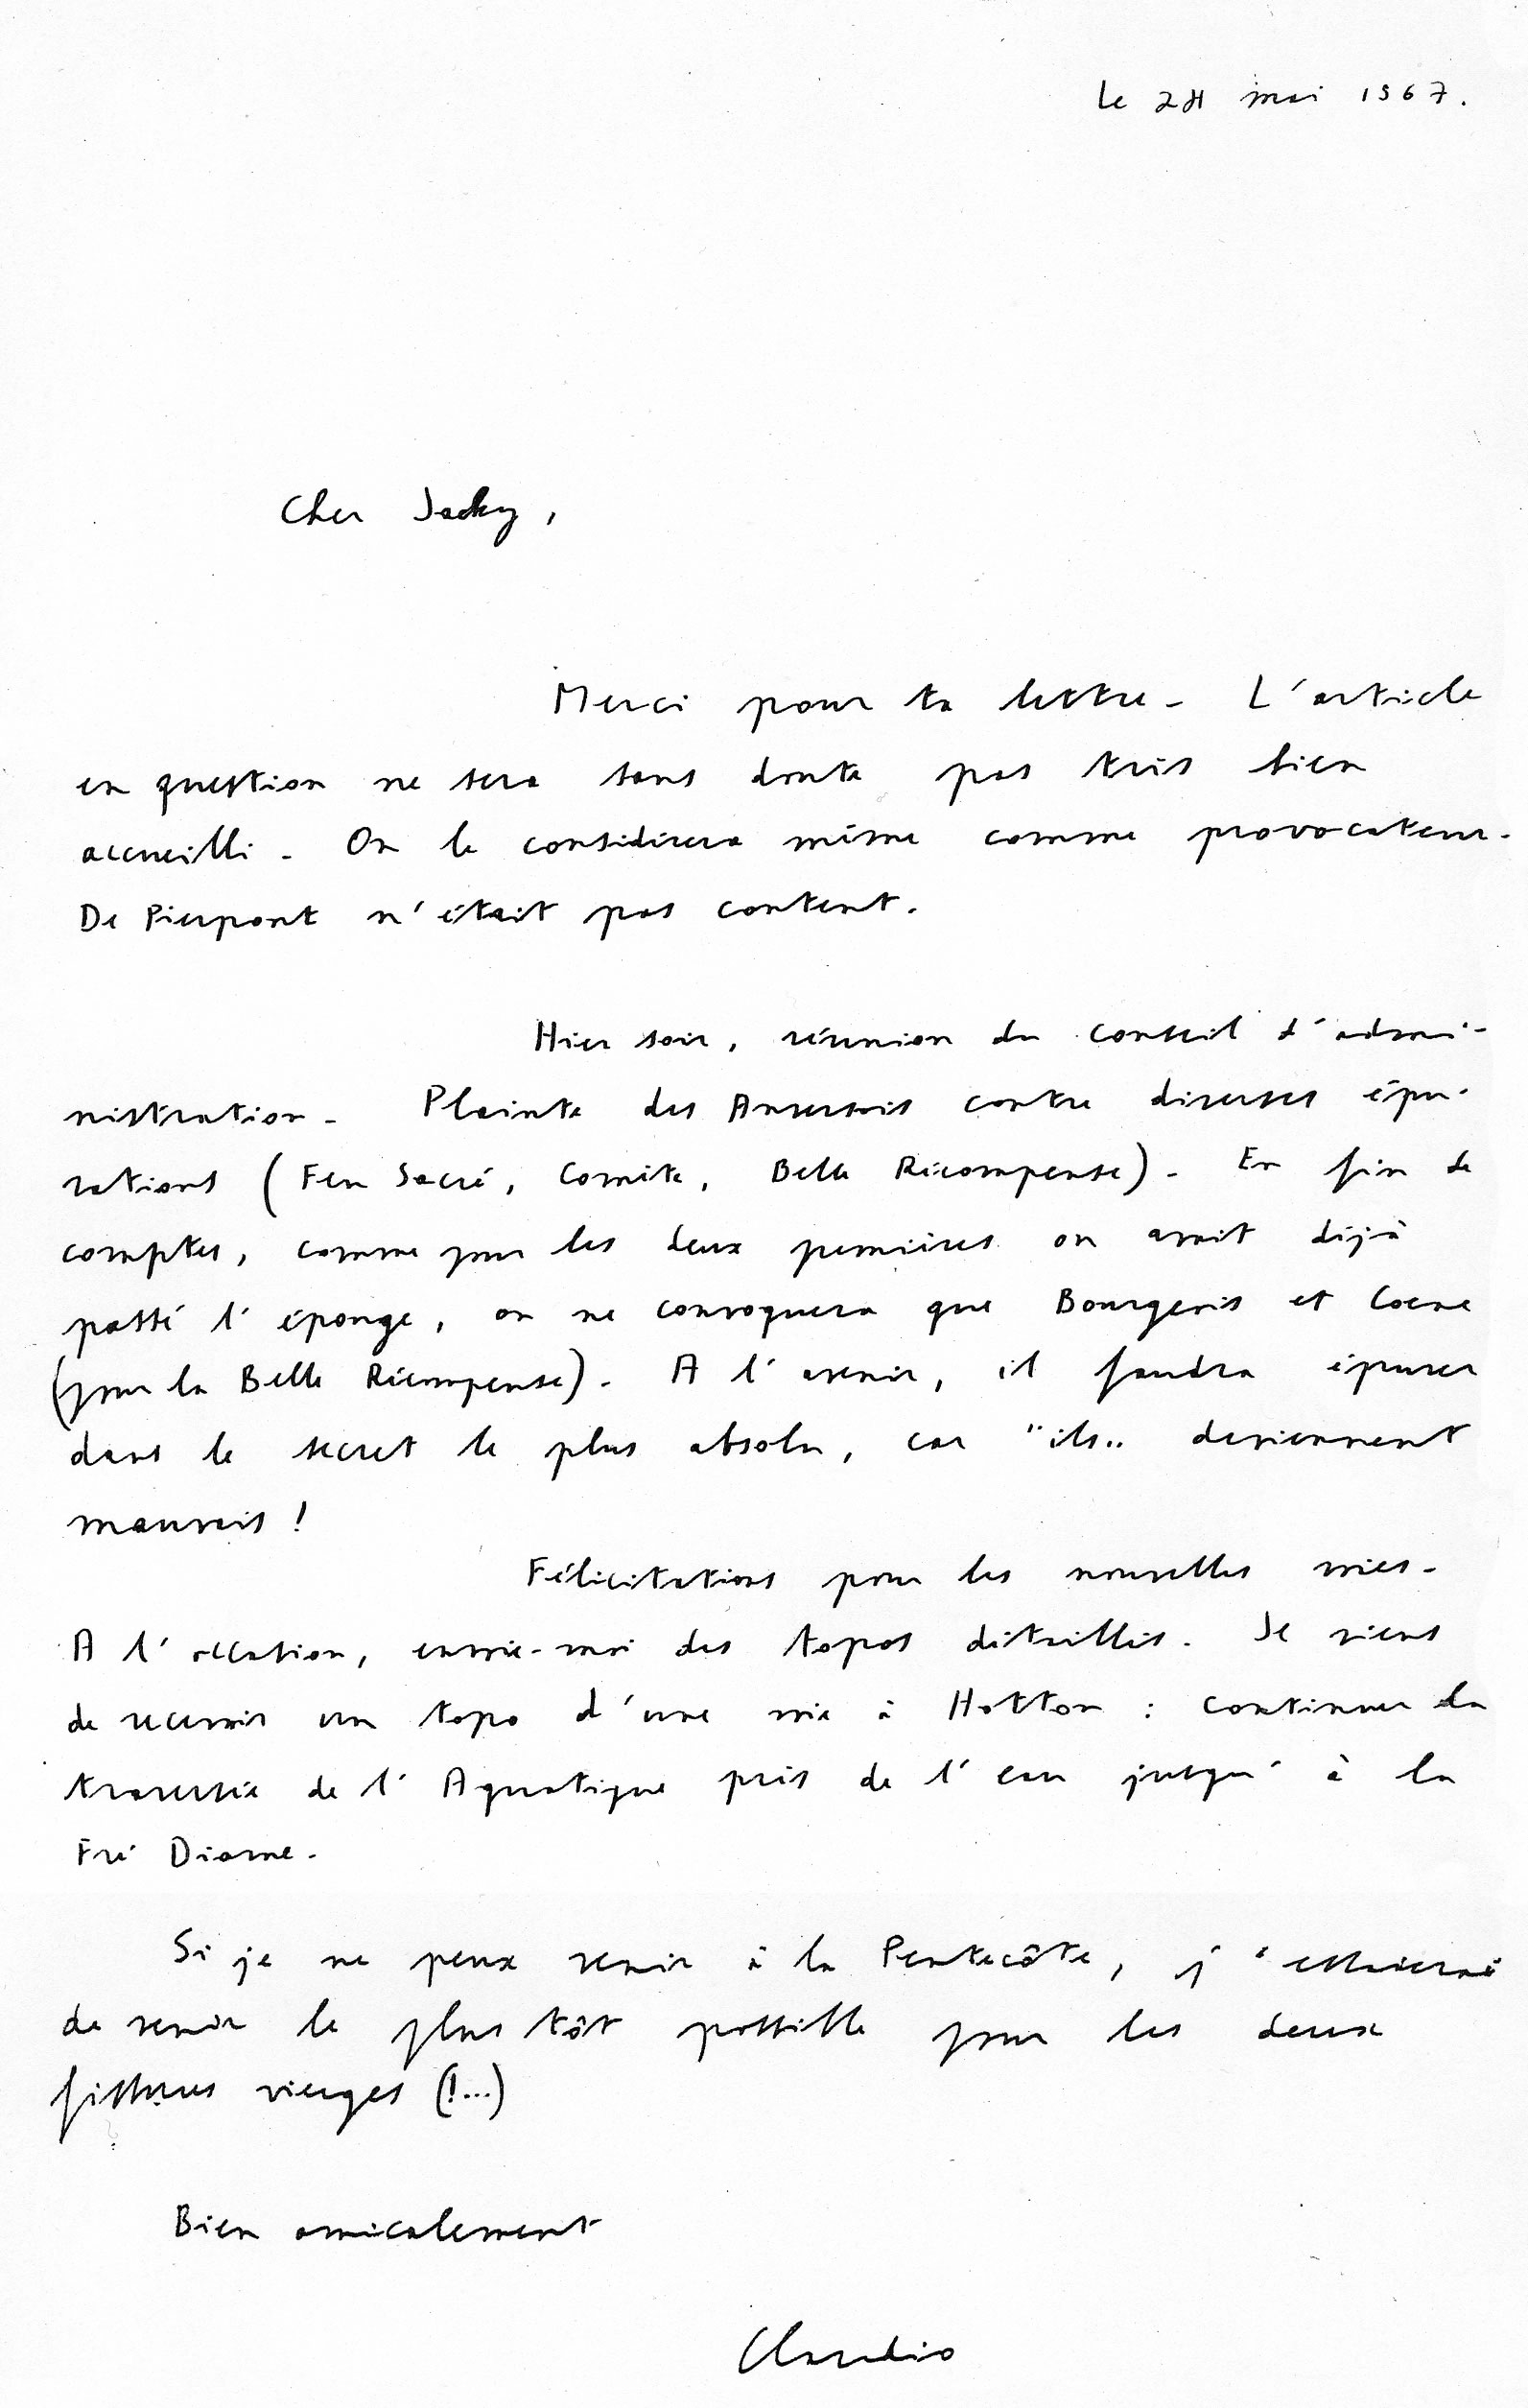 Le 24 mai 1967.
Cher Jacky,
Merci pour ta lettre. L'article
en question ne sera sans doute pas très bien
accueilli. On le considérera même comme provocateur.
De Pierpont n'était pas content.
Hier soir, réunion du conseil d'admi-
nistration. Plainte des Anversois contre diverses épu-
rations (Feu Sacré, Comète, Belle Récompense). En fin de
comptes, comme pour les deux premières on avait déjà
passé l'éponge, on ne convoquera que Bourgeois et Coene
(pour la Belle Récompense). A l'avenir, il faudra épurer
dans le secret le plus absolu, car "ils" deviennent
mauvais !
Félicitations pour les nouvelles voies.
A l'occasion, envoie-moi des topos détaillés. Je viens
de recevoir un topo d'une voie à Hotton : continuer la
traversée de l'Aquatique près de l'eau jusqu'à la
Fré Diame.
Si je ne peux venir à la Pentecôte, j'essaierai
de venir le plus tôt possible pour les deux
fissures vierges (!...)
Bien amicalement
Claudio